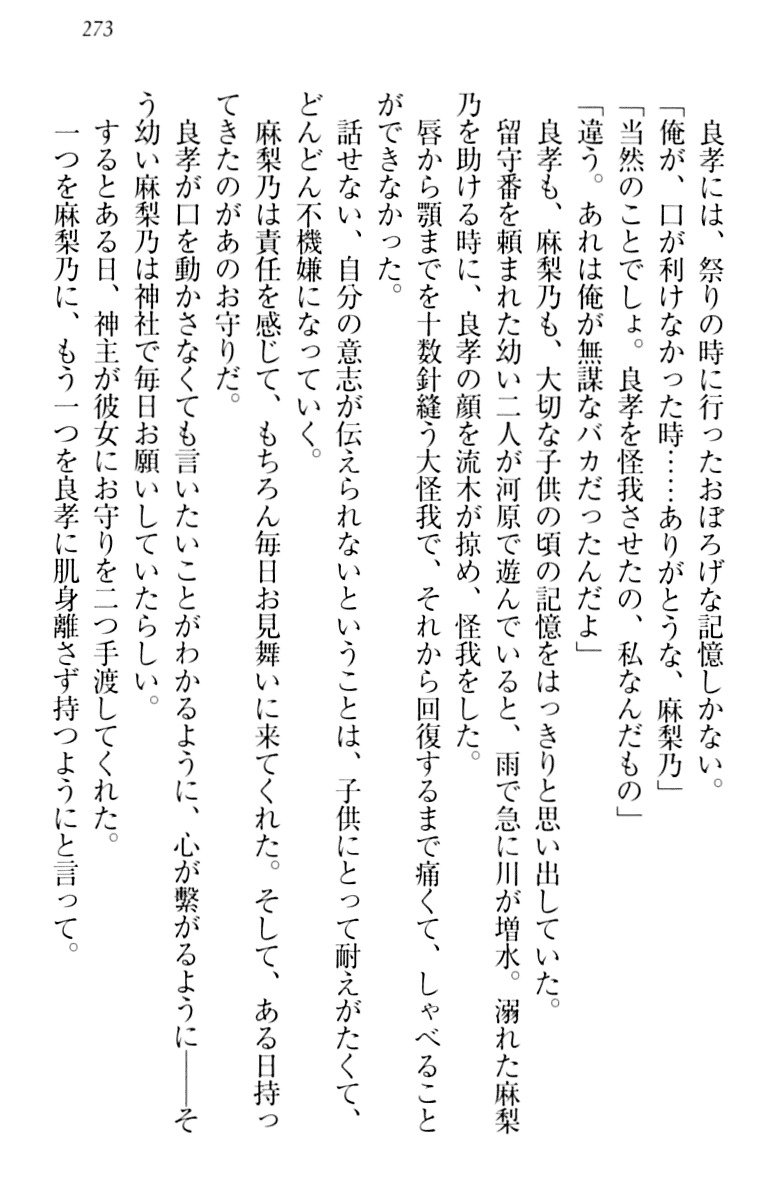 273
良孝には、祭りの時に行ったおぼろげな記憶しかない。
「俺が、口が利けなかった時……ありがとうな、麻梨乃」
「当然のことでしょ。良孝を怪我させたの、私なんだもの」
「違う。あれは俺が無謀なバカだったんだよ」
良孝も、麻梨乃も、大切な子供の頃の記憶をはっきりと思い出していた。
留守番を頼まれた幼い二人が河原で遊んでいると、雨で急に川が増水。溺れた麻梨
乃を助ける時に、良孝の顔を流木が掠め、怪我をした。
唇から顎までを十数針縫う大怪我で、それから回復するまで痛くて、しゃべること
ができなかった。
話せない、自分の意志が伝えられないということは、子供にとって耐えがたくて、
どんどん不機嫌になっていく。
麻梨乃は責任を感じて、もちろん毎日お見舞いに来てくれた。そして、ある日持っ
てきたのがあのお守りだ。
良孝が口を動かさなくても言いたいことがわかるように、心が繋がるように――そ
う幼い麻梨乃は神社で毎日お願いしていたらしい。
するとある日、神主が彼女にお守りを二つ手渡してくれた。
一つを麻梨乃に、もう一つを良孝に肌身離さず持つようにと言って。